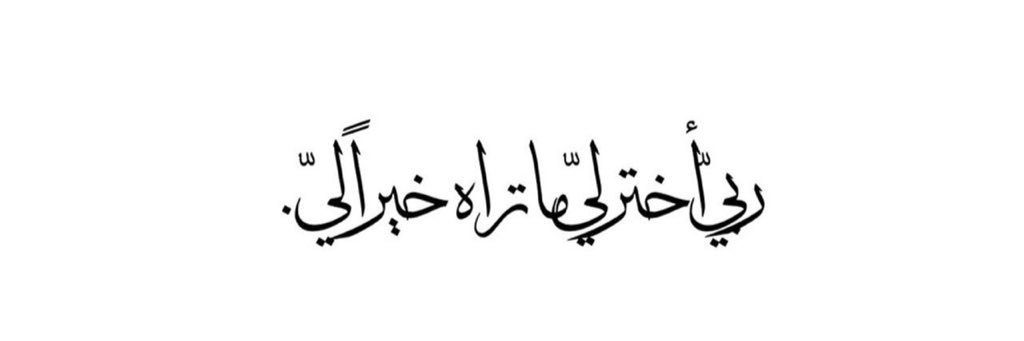 ربيّ أختر ليّ ما تراه خيراً ليّ.